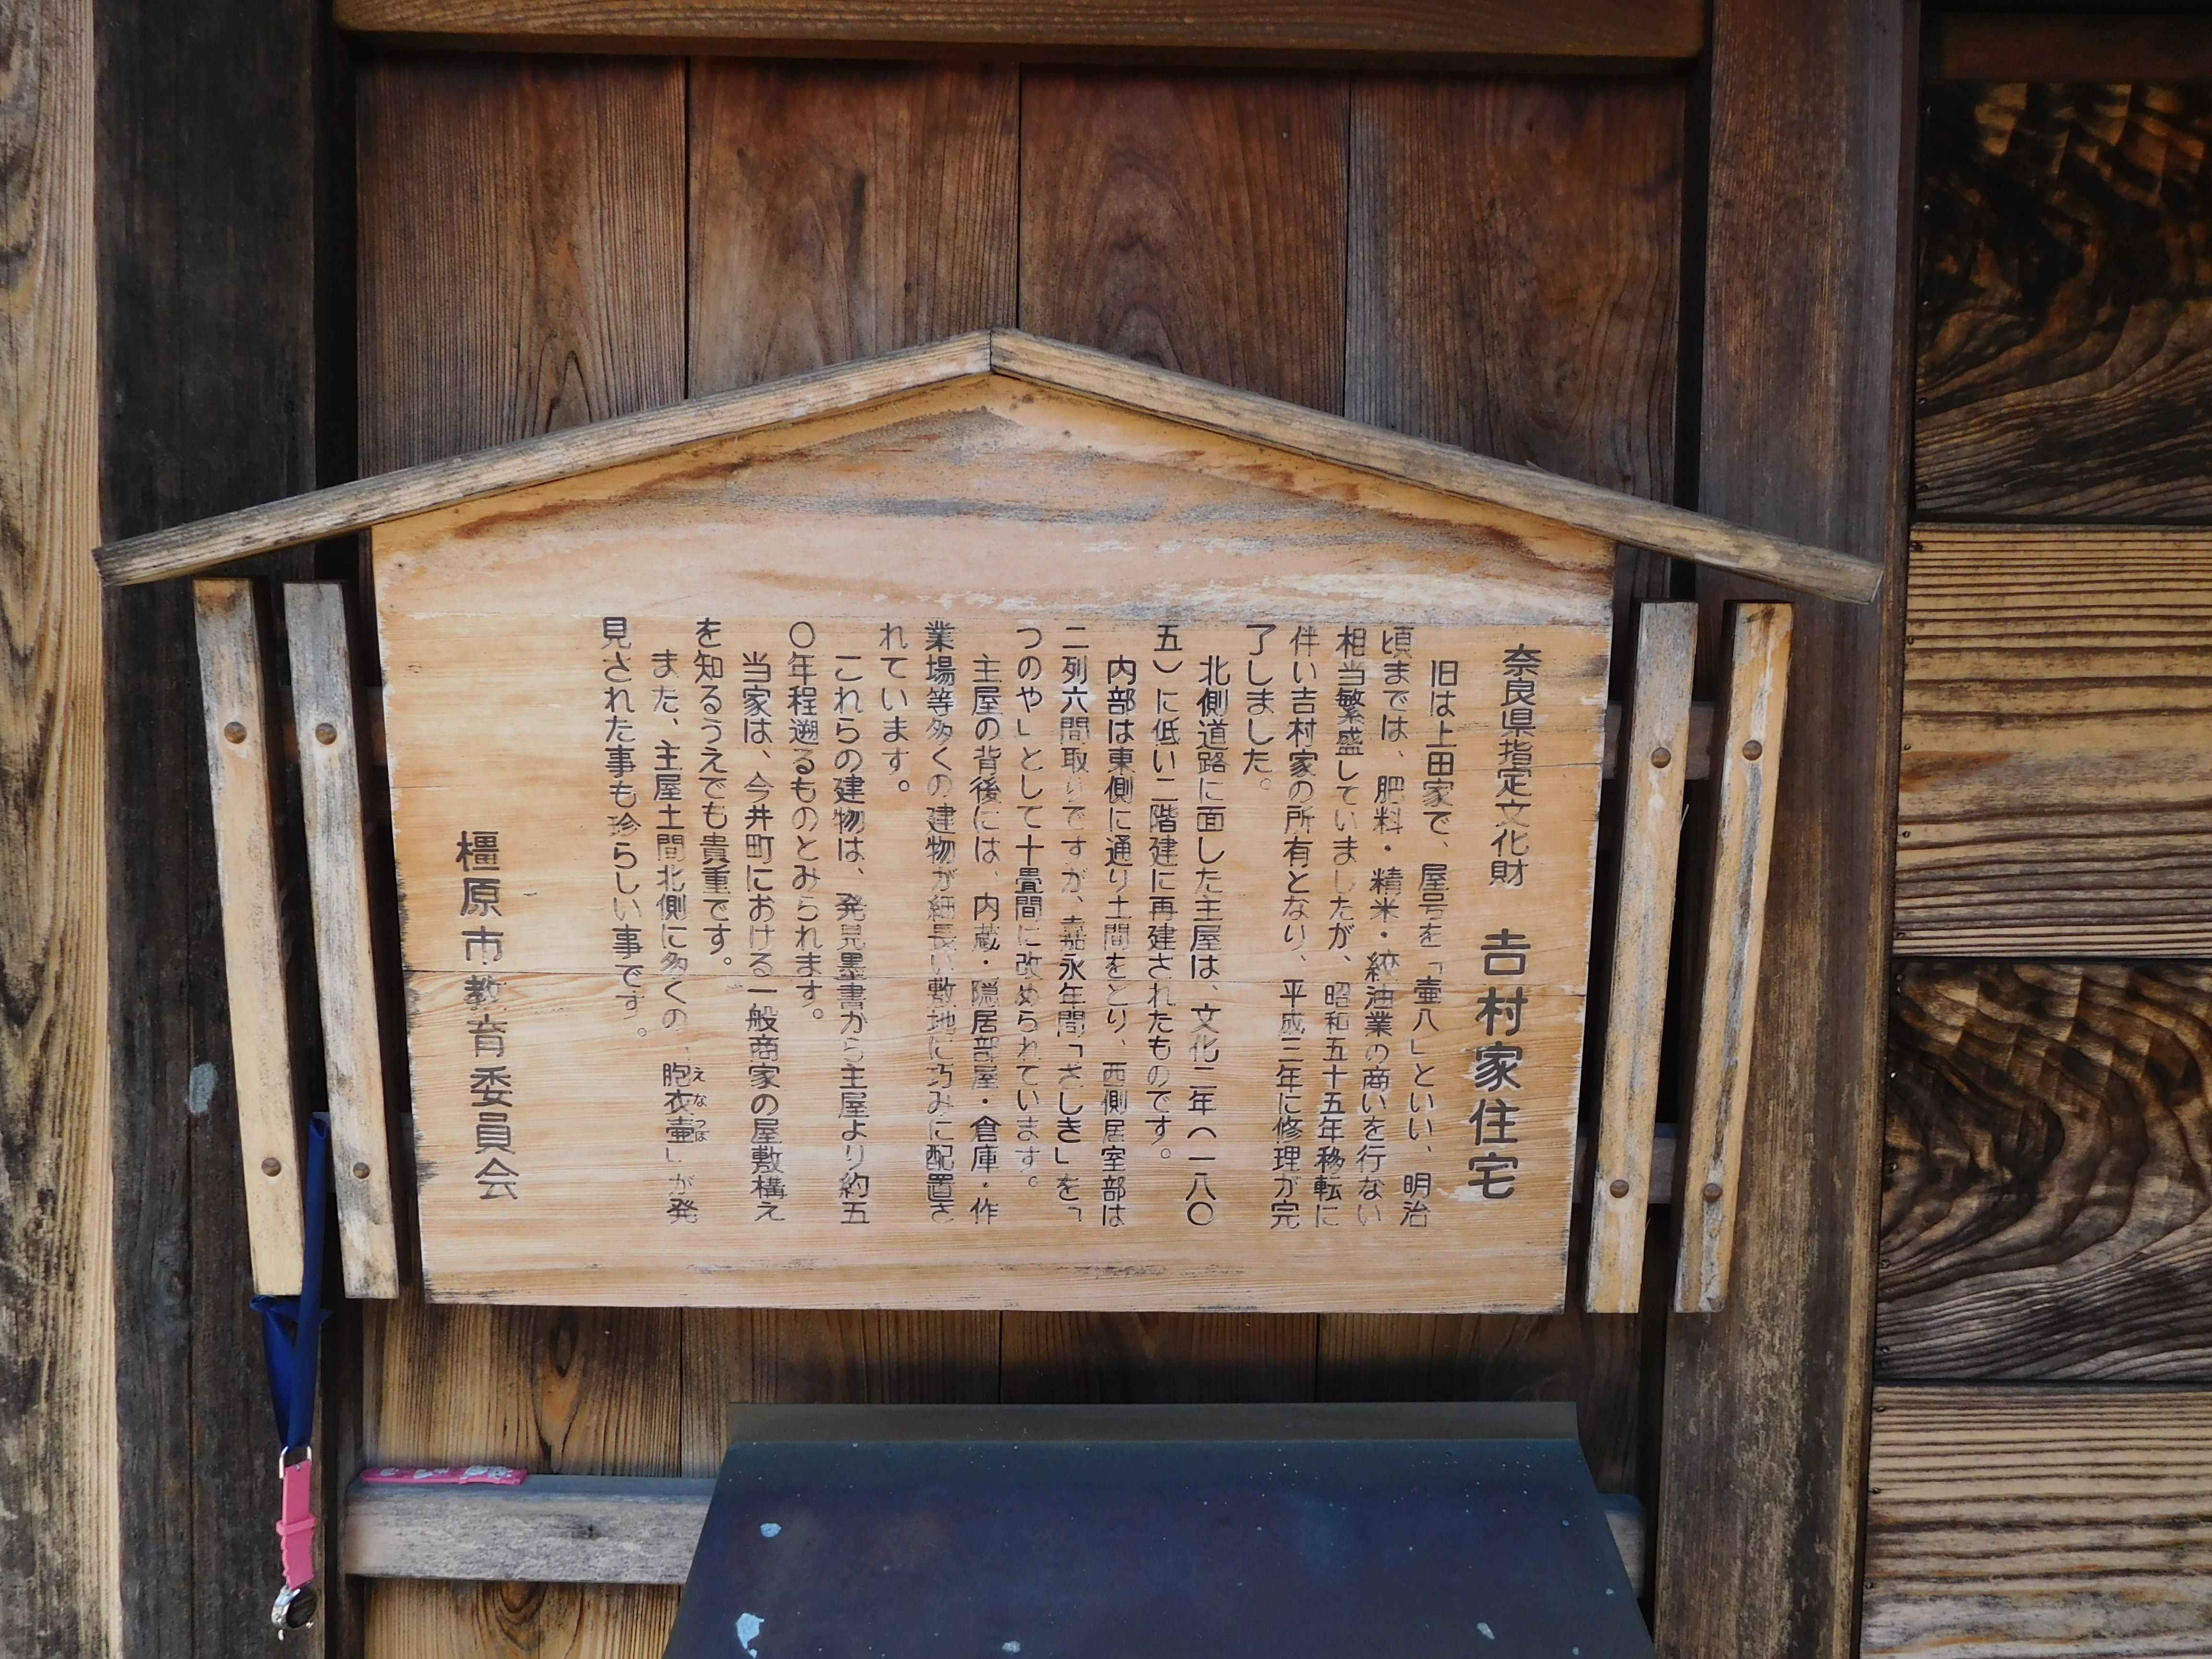 奈良県指定文化財　吉村家住宅
旧は上田家で、屋号を「壷八」といい、明治
頃までは、肥料・精米・絞油業の商いを行ない
相当繁盛していましたが、昭和五十五年移転に
伴い吉村家の所有となり、平成三年に修理が完
了しました。
北側道路に面した主屋は、文化二年（一八〇
五）に低い二階建に再建されたものです。
内部は東側に通り土間をとり、西側居室部は
二列六間取りですが、嘉永年間「ざしき」を「
つのや」として十畳間に改められています。
主屋の背後には、内蔵・隠居部屋・倉庫・作
業場等多くの建物が細長い敷地に巧みに配置さ
れています。
これらの建物は、発見墨書から主屋より約五
〇年程遡るものとみられます。
当家は、今井町における一般商家の屋敷構え
を知るうえでも貴重です。
また、主屋土間北側に多くの「胞衣壷」が発
えなつぼ
見された事も珍らしい事です。
橿原市教育委員会